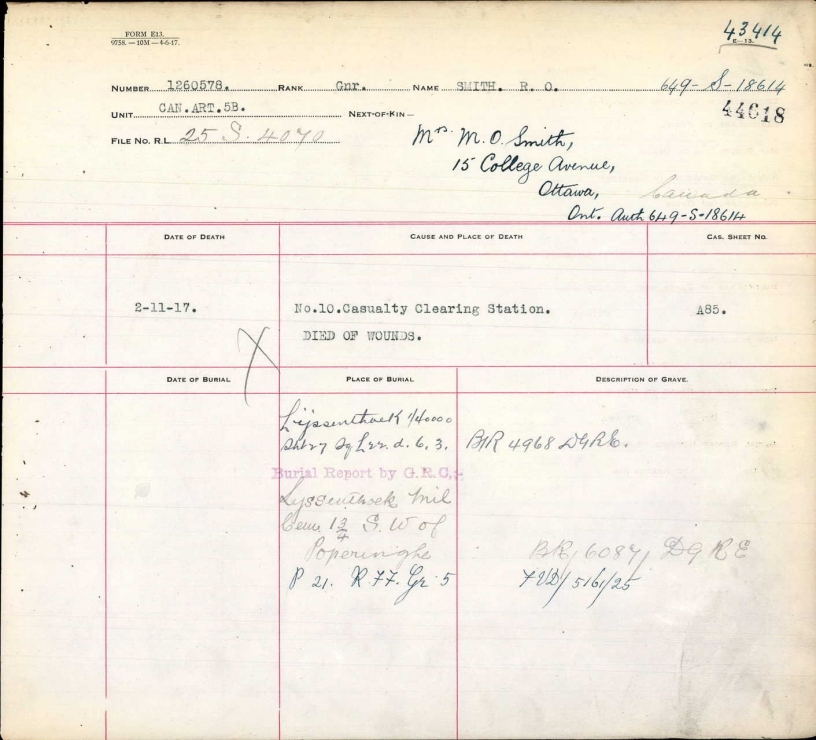 FORM E13.
9758.—10M—4-6-17.
43414
E—13.
NUMBER 1260578. RANK Gnr. NAME SMITH. R. O. 649-S-18614
UNIT CAN.ART.5B. NEXT-OF-KIN— 44618
FILE NO. R.L. 25 S. 4070
Mrs. M. O. Smith,
15 College Avenue,
Ottawa, Canada.
Ont. Auth 649-S-18614
DATE OF DEATH CAUSE AND PLACE OF DEATH CAS. SHEET NO.
2-11-17. No.10.Casualty Clearing Station. A85.
DIED OF WOUNDS.
DATE OF BURIAL PLACE OF BURIAL DESCRIPTION OF GRAVE.
Lijssenthoek 1/40000
Sht 27 Sq L 22. d. 6. 3. B/R 4968 DGRE.
Burial Report by G.R.C.;-
Lyssenthoek Mil
Cem. 1 3/4 S. W of
Poperinghe BR/6087/DGRE
P 21. R. 77. Gr. 5 /5161/25